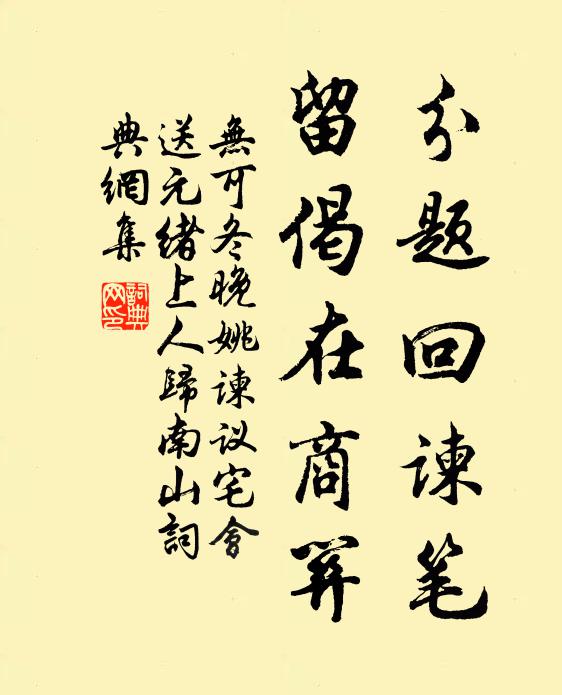 分题回谏笔
留偈在商關
無可冬晚姚諫议宅會
送元緒上人歸南山詞
典網集
詞典
网印